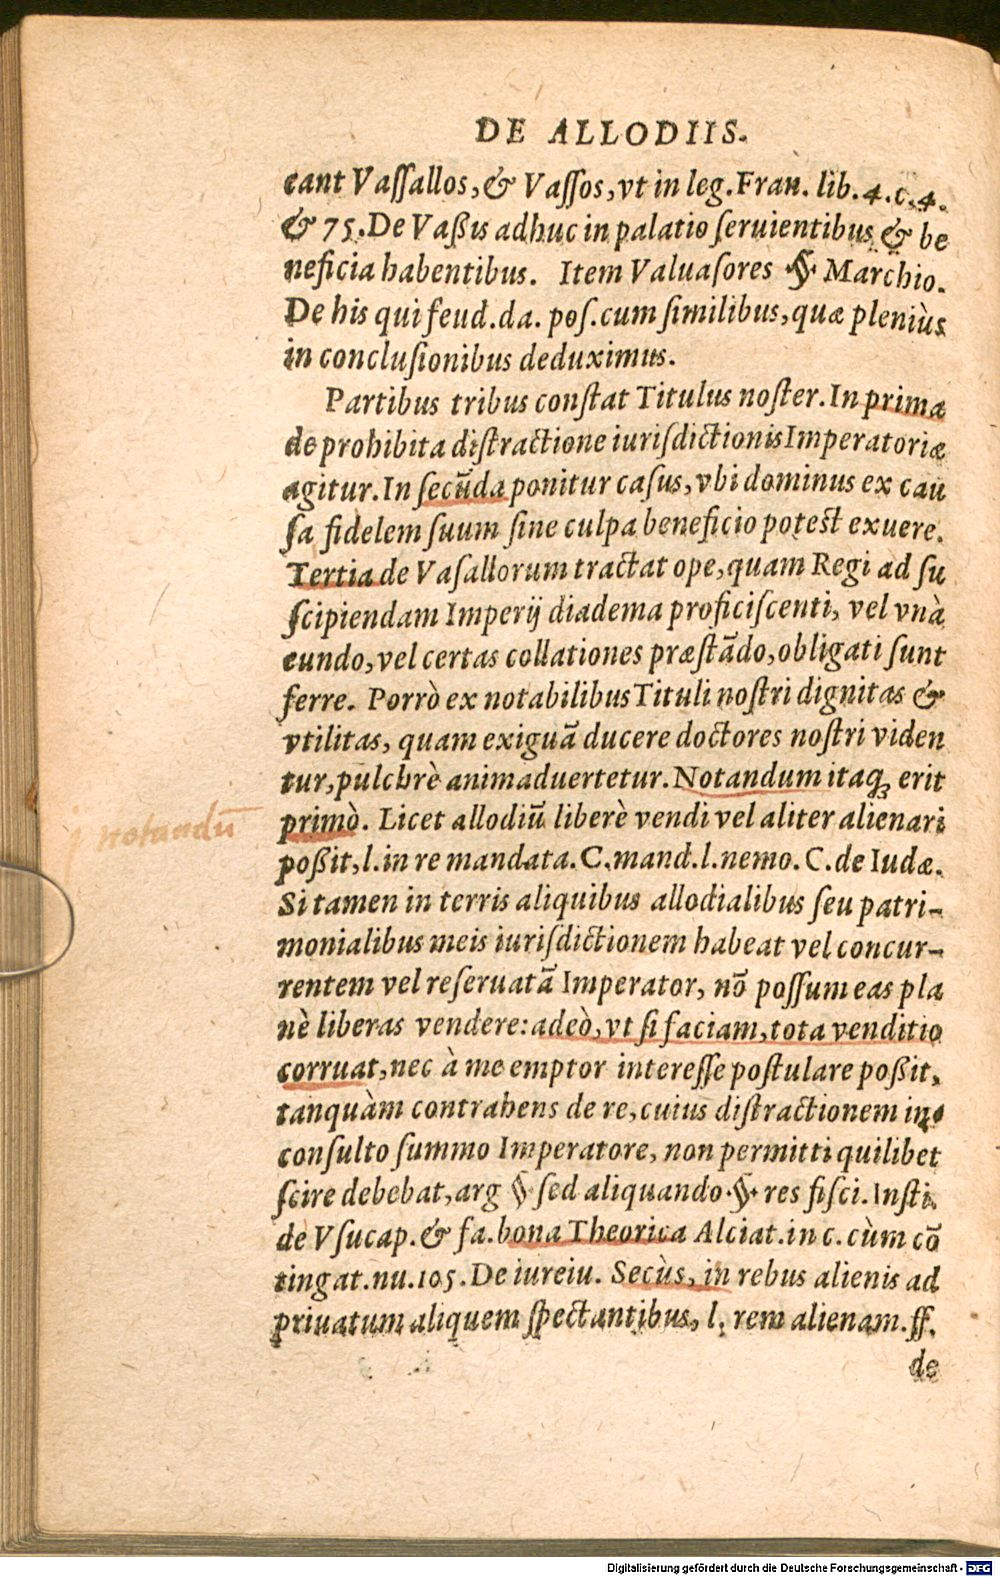 DE ALLODIIS.
cant Vaſſallos, & Vaſſos, vt in leg. Fran. lib. 4. c. 4.
& 75. De Vaßis adhuc in palatio ſeruientibus & be
neficia habentibus. Item Valuaſores §. Marchio.
De his qui feud. da. poſ. cum ſimilibus, quæ pleniùs
in concluſionibus deduximus.
Partibus tribus conſtat Titulus noſter. In prima
de prohibita diſtractione iuriſdictionis Imperatoriæ
agitur. In ſecũda ponitur caſus, vbi dominus ex cau
ſa fidelem ſuum ſine culpa beneficio poteſt exuere.
Tertia de Vaſallorum tractat ope, quam Regi ad ſu
ſcipiendam Imperij diadema proficiſcenti, vel vnà
eundo, vel certas collationes præſtãdo, obligati ſunt
ferre. Porrò ex notabilibus Tituli noſtri dignitas &
vtilitas, quam exiguã ducere doctores noſtri viden
tur, pulchrè animaduertetur. Notandum itaq; erit
primò. Licet allodiũ liberè vendi vel aliter alienari
poßit, l. in re mandata. C. mand. l. nemo. C. de Iudæ.
Si tamen in terris aliquibus allodialibus ſeu patri-
monialibus meis iuriſdictionem habeat vel concur-
rentem vel reſeruatã Imperator, nõ poſſum eas pla
nè liberas vendere: adeò, vt ſi faciam, tota venditio
corruat, nec à me emptor intereſſe poſtulare poßit,
tanquàm contrahens de re, cuius diſtractionem in-
conſulto ſummo Imperatore, non permitti quilibet
ſcire debebat, arg § ſed aliquando §. res fiſci. Inſti.
de Vſucap. & fa. bona Theorica Alciat. in c. cùm cõ
tingat. nu. 105. De iureiu. Secùs, in rebus alienis ad
priuatum aliquem ſpectantibus, l. rem alienam. ff.
de
notandũ
Digitalisierung gefördert durch die Deutsche Forschungsgemeinschaft - DFG